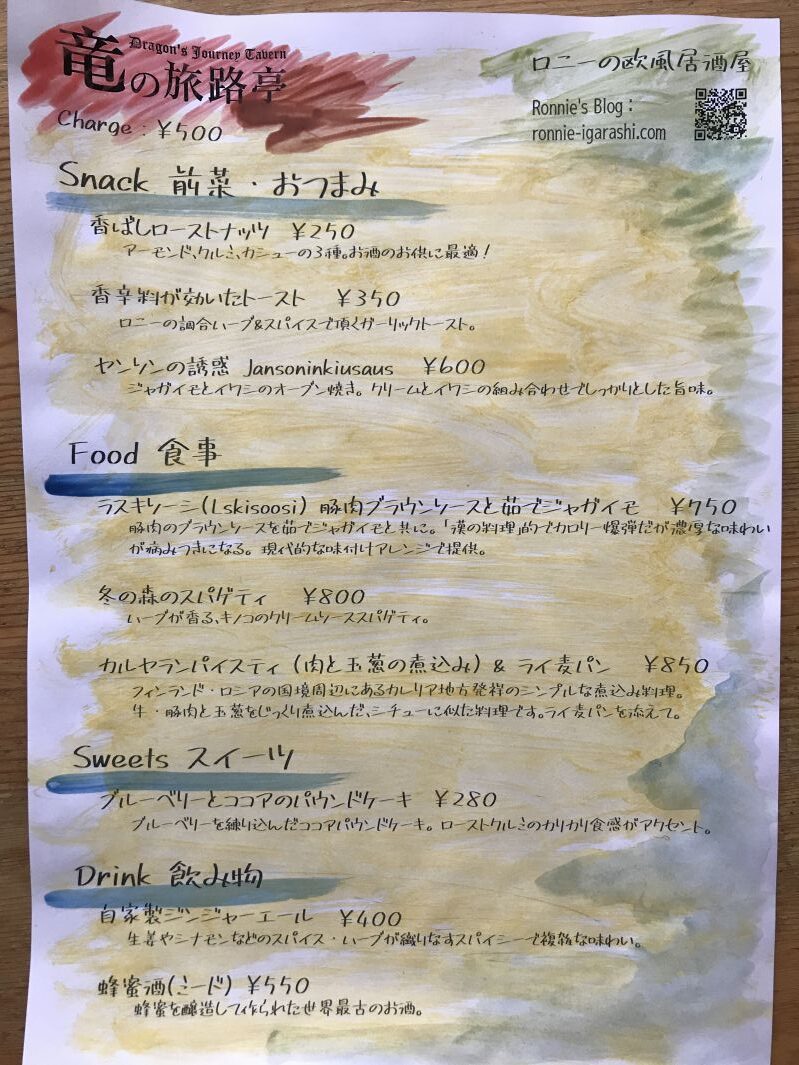 Dragon's Journey Tavern
竜の旅路亭
Charge : ¥500
ロニーの欧風居酒屋
Ronnie's Blog :
ronnie-igarashi.com
Snack 前菜・おつまみ
香ばしローストナッツ ¥250
アーモンド、クルミ、カシューの3種。お酒のお供に最適！
香辛料が効いたトースト ¥350
ロニーの調合ハーブ&スパイスで頂くガーリックトースト。
ヤンソンの誘惑 Jansoninkiusaus ¥600
ジャガイモとイワシのオーブン焼き。クリームとイワシの組み合わせでしっかりとした旨味。
Food 食事
ラスキソーシ(Lskisoosi) 豚肉ブラウンソースと茹でジャガイモ ¥750
豚肉のブラウンソースを茹でジャガイモと共に。「漢の料理」的でカロリー爆弾だが濃厚な味わい
が病みつきになる。現代的な味付けアレンジで提供。
冬の森のスパゲティ ¥800
ハーブが香る、キノコのクリームソーススパゲティ。
カルヤランパイスティ (肉と玉葱の煮込み) & ライ麦パン ¥850
フィンランド・ロシアの国境周辺にあるカレリア地方発祥のシンプルな煮込み料理。
牛・豚肉と玉葱をじっくり煮込んだ、シチューに似た料理です。ライ麦パンを添えて。
Sweets スイーツ
ブルーベリーとココアのパウンドケーキ ¥280
ブルーベリーを練り込んだココアパウンドケーキ。ローストクルミのカリカリ食感がアクセント。
Drink 飲み物
自家製ジンジャーエール ¥400
生姜やシナモンなどのスパイス・ハーブが織りなすスパイシーで複雑な味わい。
蜂蜜酒(ミード) ¥550
蜂蜜を醸造して作られた世界最古のお酒。